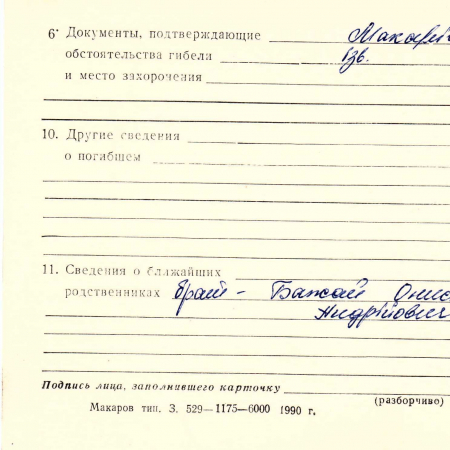 6* Документы, подтверждающие
обстоятельства гибели
и место захоронения
10. Другие сведения
о погибшем
11. Сведения о ближайших
родственниках брат - Бажай
Андрійович
Подпись лица, заполнившего карточку
(разборчиво)
Макаров тип. З. 529—1175—6000 1990 г.